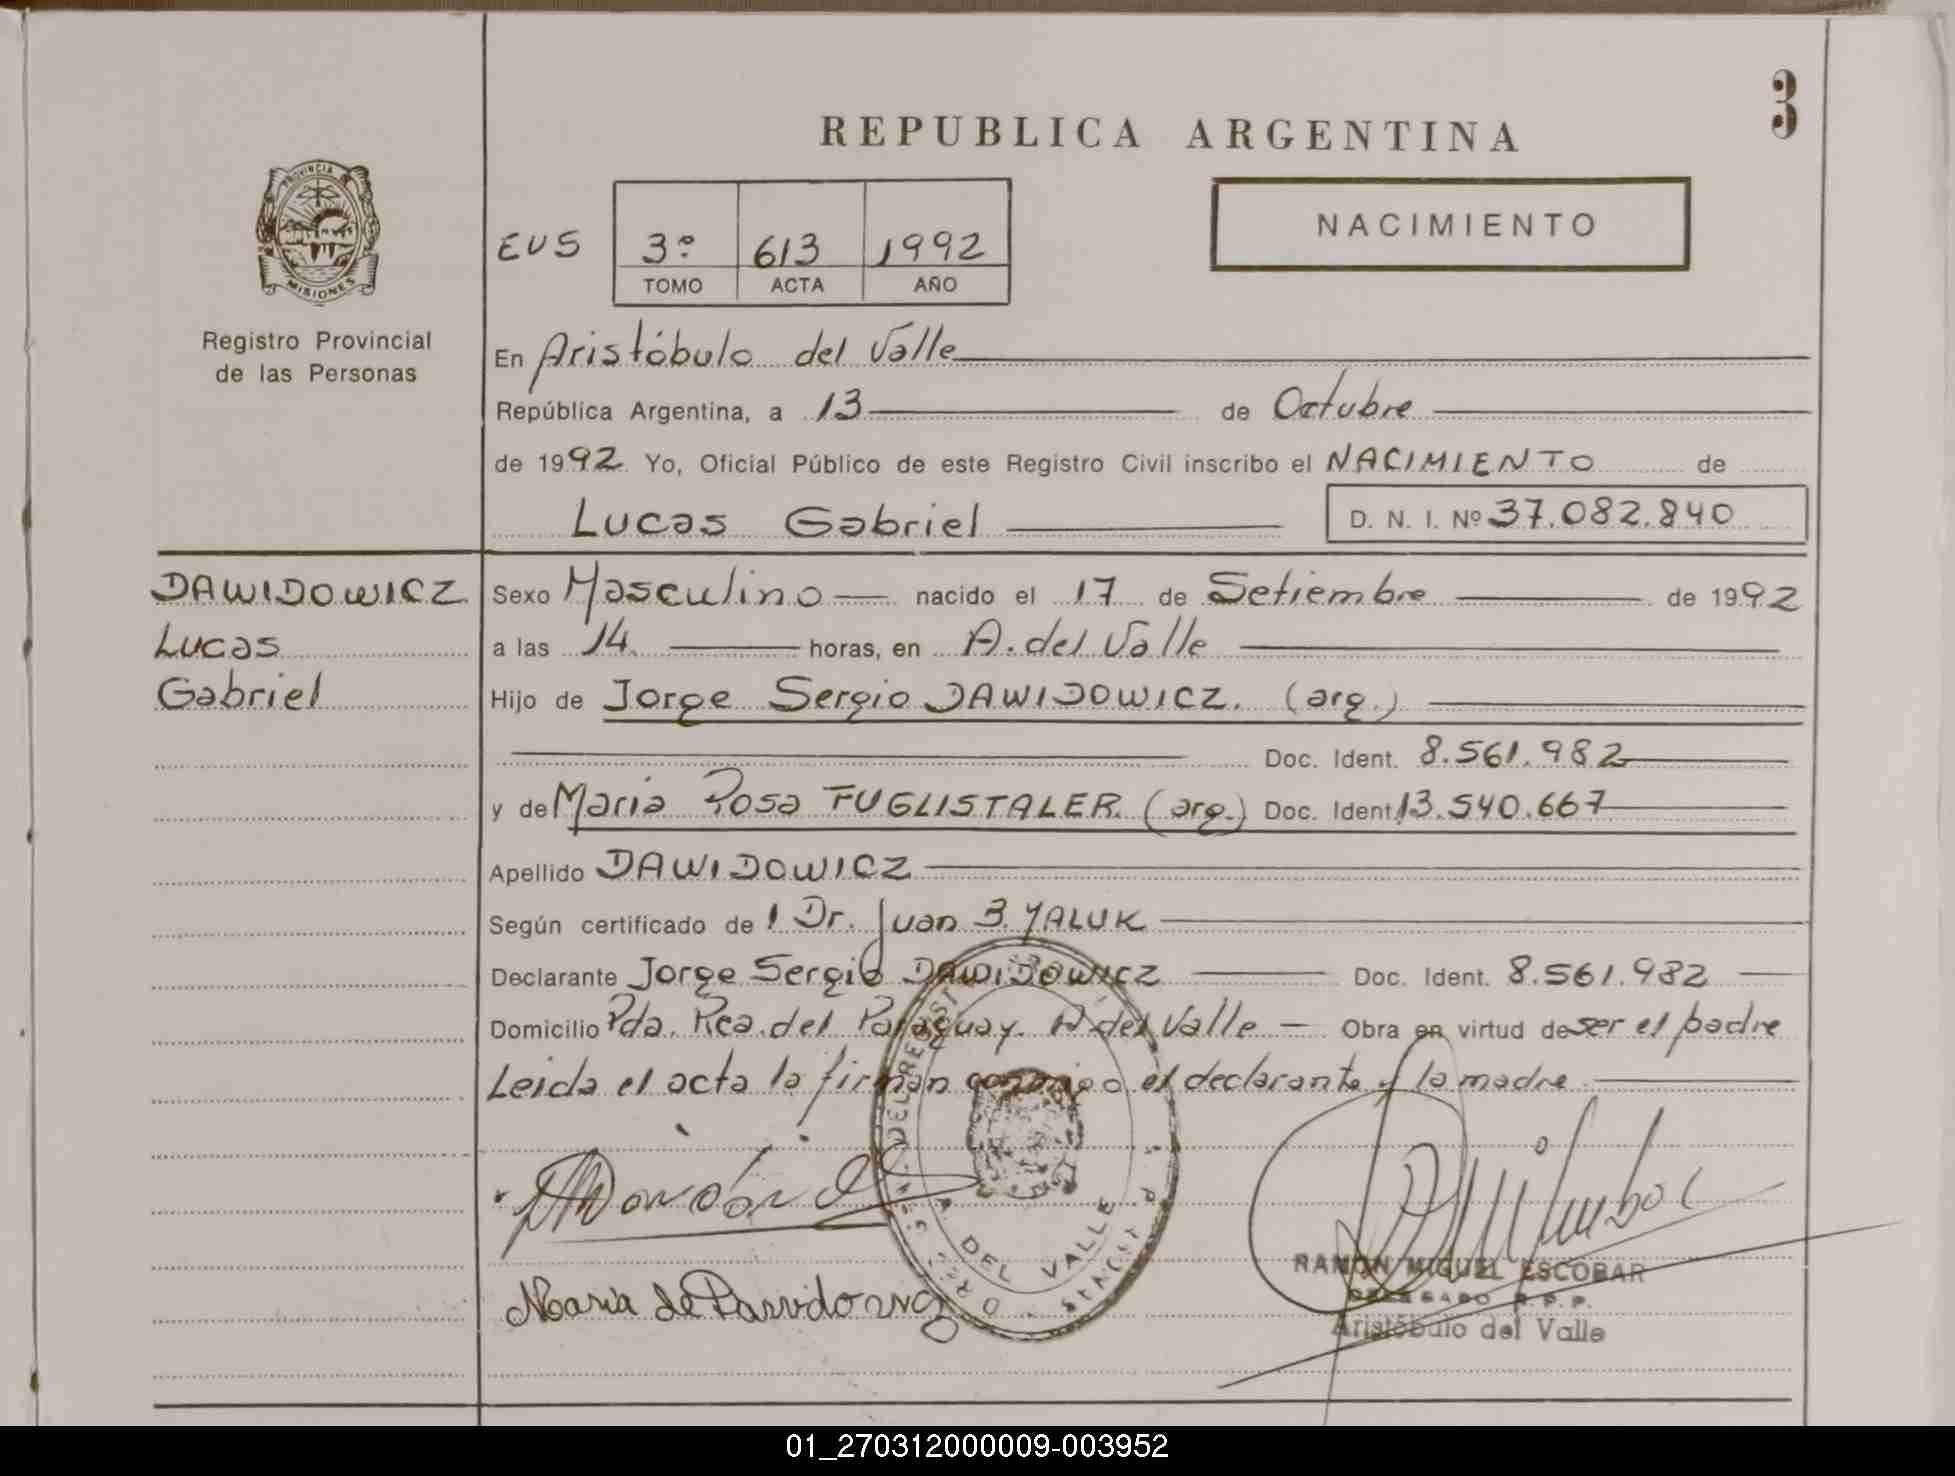 3
REPUBLICA ARGENTINA
PROVINCIA DE
MISIONES
Registro Provincial
de las Personas
NACIMIENTO
EUS 3º 613 1992
TOMO ACTA AÑO
En Aristóbulo del Valle
República Argentina, a 13 de Octubre
de 1992. Yo, Oficial Público de este Registro Civil inscribo el NACIMIENTO de
Lucas Gabriel D. N. I. Nº 37.082.840
DAWIDOWICZ
Lucas
Gabriel
Sexo Masculino nacido el 17 de Setiembre de 1992
a las 14 horas, en A. del Valle
Hijo de Jorge Sergio DAWIDOWICZ. (arg.)
Doc. Ident. 8.561.982
y de Maria Rosa FUGLISTALER. (arg.) Doc. Ident. 13.540.667
Apellido DAWIDOWICZ
Según certificado de l Dr. Juan B. YALUK
Declarante Jorge Sergio DAWIDOWICZ Doc. Ident. 8.561.982
Domicilio Pda. Rca. del Paraguay. A. del Valle – Obra en virtud de ser el padre
Leida el acta la firman conmigo el declarante y la madre
A. DEL VALLE
Maria de Dawidowicz
RAMON MIGUEL ESCOBAR
DELEGADO R.P.P.
Aristóbulo del Valle
01_270312000009-003952